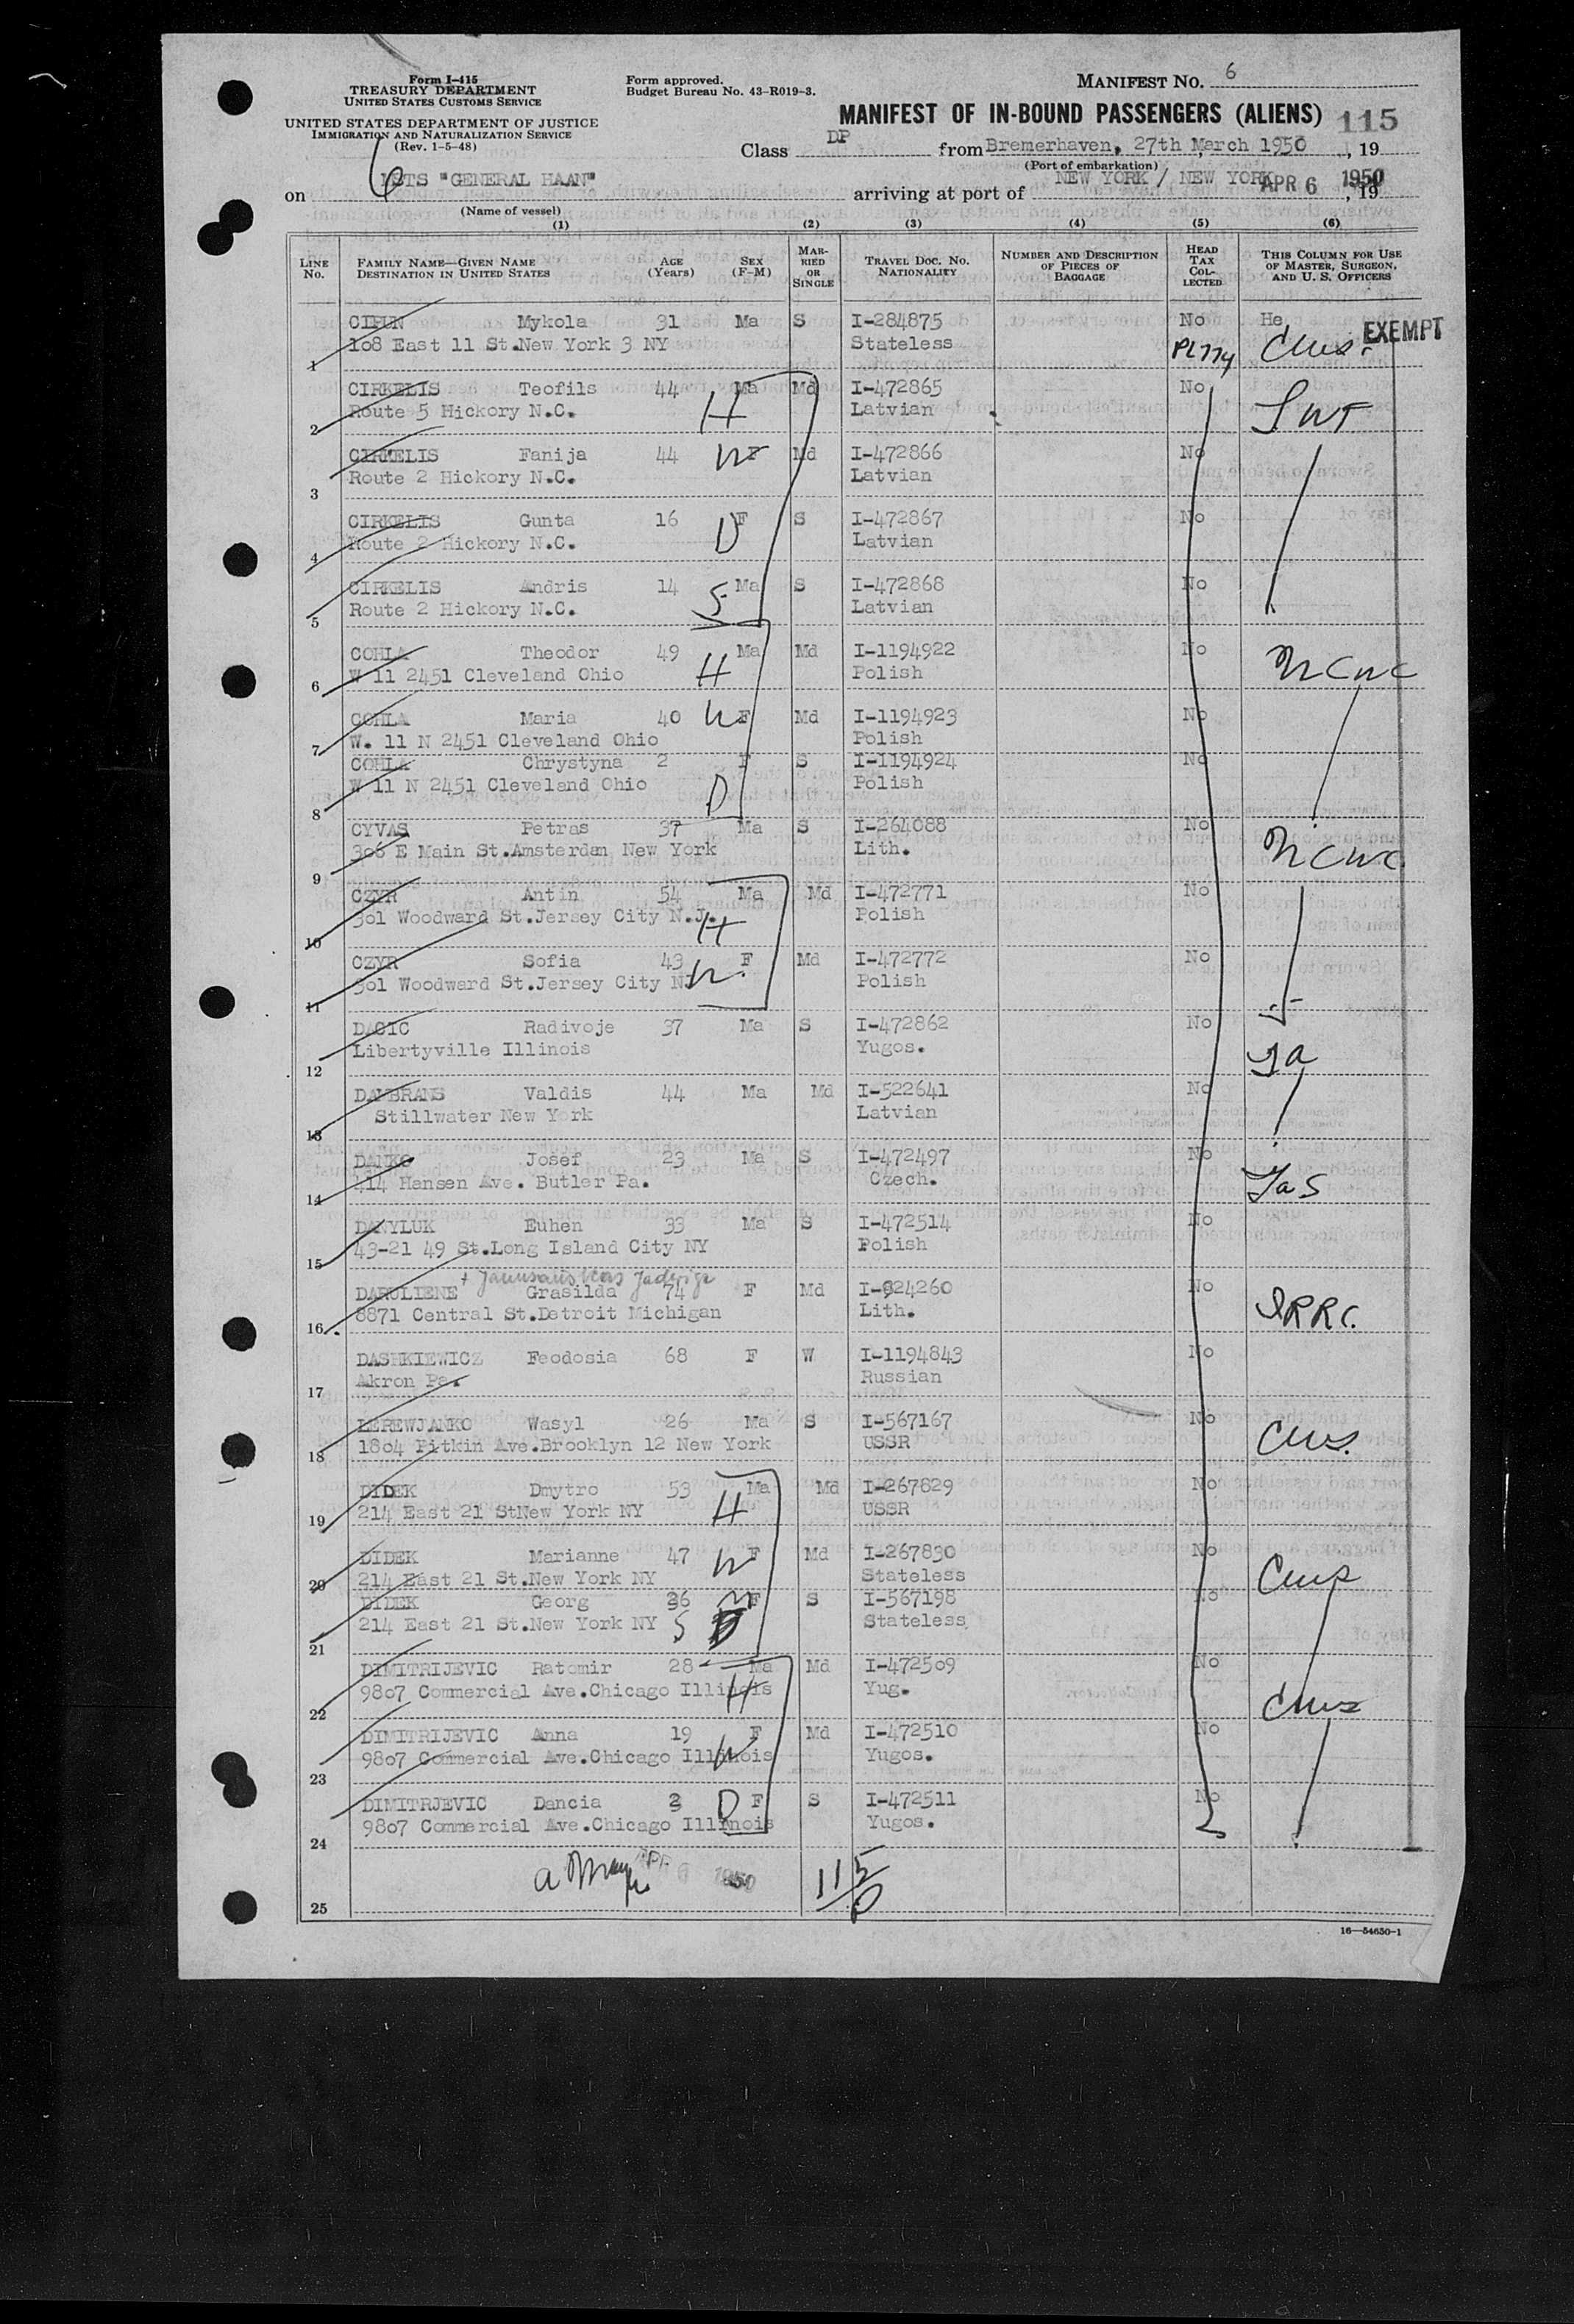 Form I-415
TREASURY DEPARTMENT
UNITED STATES CUSTOMS SERVICE
UNITED STATES DEPARTMENT OF JUSTICE
IMMIGRATION AND NATURALIZATION SERVICE
(Rev. 1-5-48)
Form approved.
Budget Bureau No. 43-R019-3.
MANIFEST NO. 6
MANIFEST OF IN-BOUND PASSENGERS (ALIENS) 115
Class DP from Bremerhaven, 27th March 1950, 19
(Port of embarkation)
6
on "GENERAL HAAN" arriving at port of NEW YORK / NEW YORK APR 6 1950, 19
(Name of vessel)
(1) (2) (3) (4) (5) (6)
LINE No. FAMILY NAME—GIVEN NAME DESTINATION IN UNITED STATES AGE (Years) SEX (F-M) MARRIED OR SINGLE TRAVEL DOC. NO. NATIONALITY NUMBER AND DESCRIPTION OF PIECES OF BAGGAGE HEAD TAX COLLECTED THIS COLUMN FOR USE OF MASTER, SURGEON, AND U. S. OFFICERS
Mykola 31 Ma S I-284875 No He EXEMPT
1 108 East 11 St.New York 3 NY Stateless PL774 Cws.
CIRKELIS Teofils 44 Ma Md I-472865 No
2 Route 5 Hickory N.C. H Latvian
CIRKELIS Fanija 44 W F Md I-472866 No
3 Route 2 Hickory N.C. Latvian
CIRKELIS Gunta 16 F S I-472867 No
4 Route 2 Hickory N.C. D Latvian
CIRKELIS Andris 14 Ma S I-472868 No
5 Route 2 Hickory N.C. S Latvian
COHLA Theodor 49 Ma Md I-1194922 No NCWC
6 W 11 2451 Cleveland Ohio H Polish
COHLA Maria 40 W F Md I-1194923 No
7 W. 11 N 2451 Cleveland Ohio Polish
COHLA Chrystyna 2 F S I-1194924 No
8 W 11 N 2451 Cleveland Ohio D Polish
CYVAS Petras 37 Ma S I-264088 No
9 306 E Main St.Amsterdam New York Lith. NCWC
CZYR Antin 54 Ma Md I-472771 No
10 301 Woodward St.Jersey City N.J. H Polish
CZYR Sofia 43 F Md I-472772 No
11 301 Woodward St.Jersey City NJ W Polish
DACIC Radivoje 37 Ma S I-472862 No
12 Libertyville Illinois Yugos.
DAMBRANS Valdis 44 Ma Md I-522641 No
13 Stillwater New York Latvian
DANKO Josef 23 Ma S I-472497 No
14 414 Hansen Ave. Butler Pa. Czech.
DANYLUK Euhen 33 Ma S I-472514 No
15 43-21 49 St.Long Island City NY Polish
DARULIENE Grasilda 74 F Md I-924260 No
16 8871 Central St.Detroit Michigan Lith.
DASHKIEWICZ Feodosia 68 F W I-1194843 No
17 Akron Pa. Russian
Wasyl 26 Ma S I-567167 No
18 1804 Pitkin Ave.Brooklyn 12 New York USSR Cws.
DIDEK Dmytro 53 Ma Md I-267829 No
19 214 East 21 StNew York NY H USSR
DIDEK Marianne 47 W F Md I-267830 No
20 214 East 21 St.New York NY Stateless Cws
DIDEK Georg 26 F S I-567198 No
21 214 East 21 St.New York NY S Stateless
DIMITRIJEVIC Ratomir 28 Ma Md I-472509 No
22 9807 Commercial Ave.Chicago Illinois H Yug. Cws
DIMITRIJEVIC Anna 19 F Md I-472510 No
23 9807 Commercial Ave.Chicago Illinois W Yugos.
DIMITRJEVIC Dancia D F S I-472511 No
24 9807 Commercial Ave.Chicago Illinois Yugos.
25 1950 115
16—54650-1